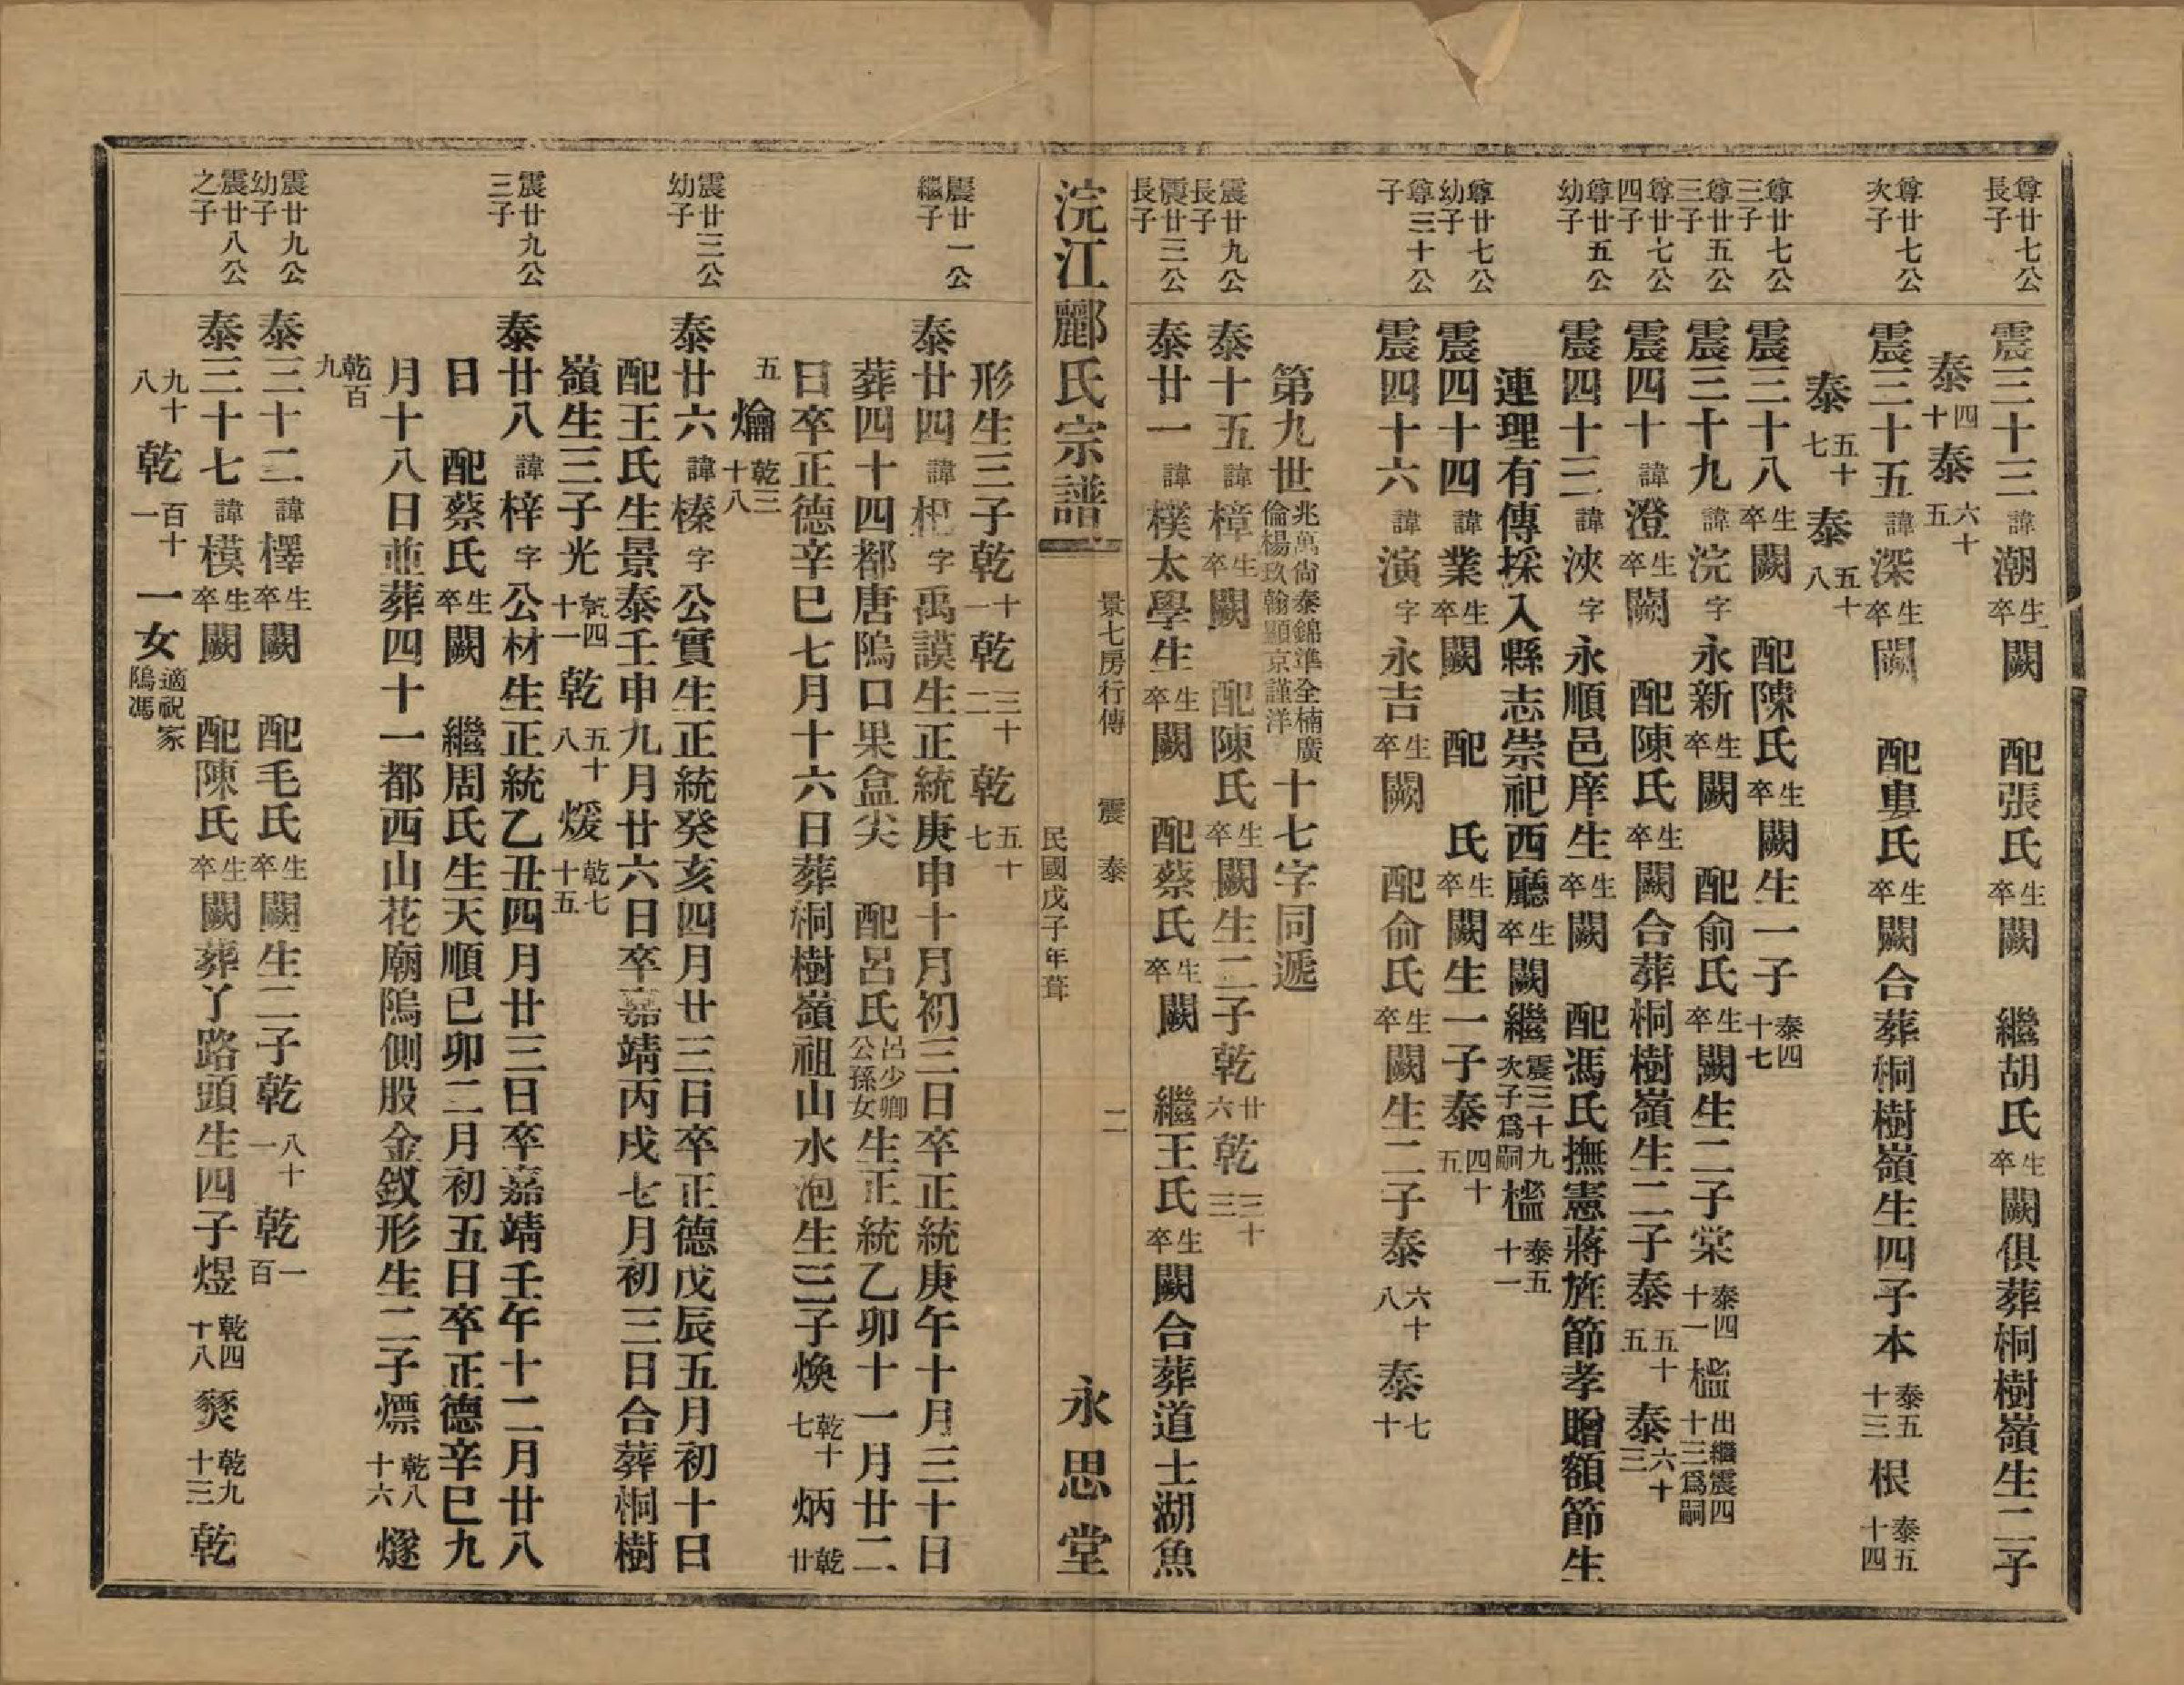 尊廿七公長子
震三十三諱潮生卒闕　配張氏生卒闕　繼胡氏生卒闕俱葬桐樹嶺生二子
泰四十泰六十五
尊廿七公次子
震三十五諱深生卒闕　配婁氏生卒闕合葬桐樹嶺生四子本泰五十三根泰五十四
泰五十七泰五十八
尊廿七公三子
震三十八生卒闕　配陳氏生卒闕生一子泰四十七
尊廿五公三子
震三十九諱浣字永新生卒闕　配俞氏生卒闕生二子棠泰四十一㯭出繼震四十三爲嗣
尊廿七公四子
震四十諱澄生卒闕　配陳氏生卒闕合葬桐樹嶺生二子泰五十五泰六十三
尊廿五公幼子
震四十三諱浹字永順邑庠生生卒闕　配馮氏撫憲蔣旌節孝贈額節生
連理有傳採入縣志崇祀西廳生卒闕繼震三十九次子爲嗣㯭泰五十一
尊廿七公幼子
震四十四諱業生卒闕　配　氏生卒闕生一子泰四十五
尊三十公子
震四十六諱演字永吉生卒闕　配俞氏生卒闕生二子泰六十八泰七十
第九世兆萬尙泰錦準全楠廣倫楊玖翰顯京謹洋十七字同遞
震廿九公長子
泰十五諱樟生卒闕　配陳氏生卒闕生二子乾廿六乾三十三
震廿三公長子
泰廿一諱樸太學生生卒闕　配蔡氏生卒闕　繼王氏生卒闕合葬道士湖魚
浣江酈氏宗譜
景七房行傳　震　泰　二
民國戊子年葺
永思堂
形生三子乾十一乾三十二乾五十七
震廿一公繼子
泰廿四諱杞字禹謨生正統庚申十月初三日卒正統庚午十月三十日
葬四十四都唐隖口果盒尖　配呂氏呂少卿公孫女生正統乙卯十一月廿二
日卒正德辛巳七月十六日葬桐樹嶺祖山水泡生三子煥乾十七炳乾廿
五爚乾三十八
震廿三公幼子
泰廿六諱榛字公實生正統癸亥四月廿三日卒正德戊辰五月初十日
配王氏生景泰壬申九月廿六日卒嘉靖丙戌七月初三日合葬桐樹
嶺生三子光乾四十一乾五十八煖乾七十五
震廿九公三子
泰廿八諱梓字公材生正統乙丑四月廿三日卒嘉靖壬午十二月廿八
日　配蔡氏生卒闕　繼周氏生天順己卯二月初五日卒正德辛巳九
月十八日並葬四十一都西山花廟隖側股金釵形生二子熛乾八十六燧
乾百九
震廿九公幼子
泰三十二諱檡生卒闕　配毛氏生卒闕生二子乾八十一乾一百
震廿八公之子
泰三十七諱模生卒闕　配陳氏生卒闕葬丫路頭生四子煜乾四十八燹乾九十三乾
九十八乾百十一一女適祝家隖馮